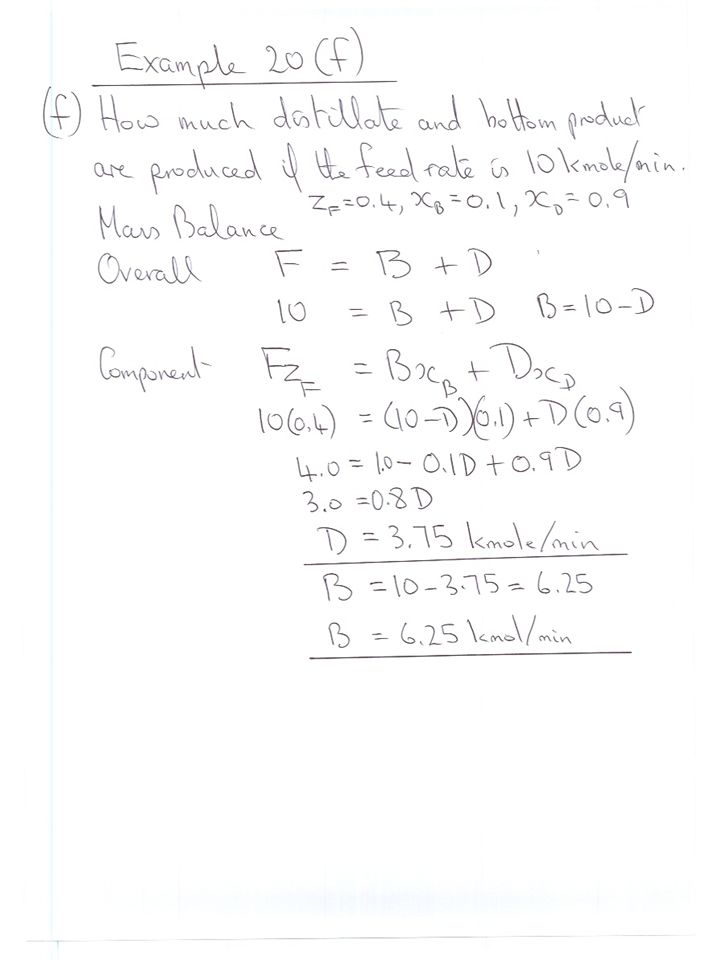 Example 20 (f)
(f) How much distillate and bottom product
are produced if the feed rate is 10 kmole/min.
z_F = 0.4, x_B = 0.1, x_D = 0.9
Mass Balance
Overall F = B + D
10 = B + D B = 10 - D
Component Fz_F = Bx_B + Dx_D
10(0.4) = (10 - D)(0.1) + D(0.9)
4.0 = 1.0 - 0.1D + 0.9D
3.0 = 0.8D
D = 3.75 kmole/min
B = 10 - 3.75 = 6.25
B = 6.25 kmol/min